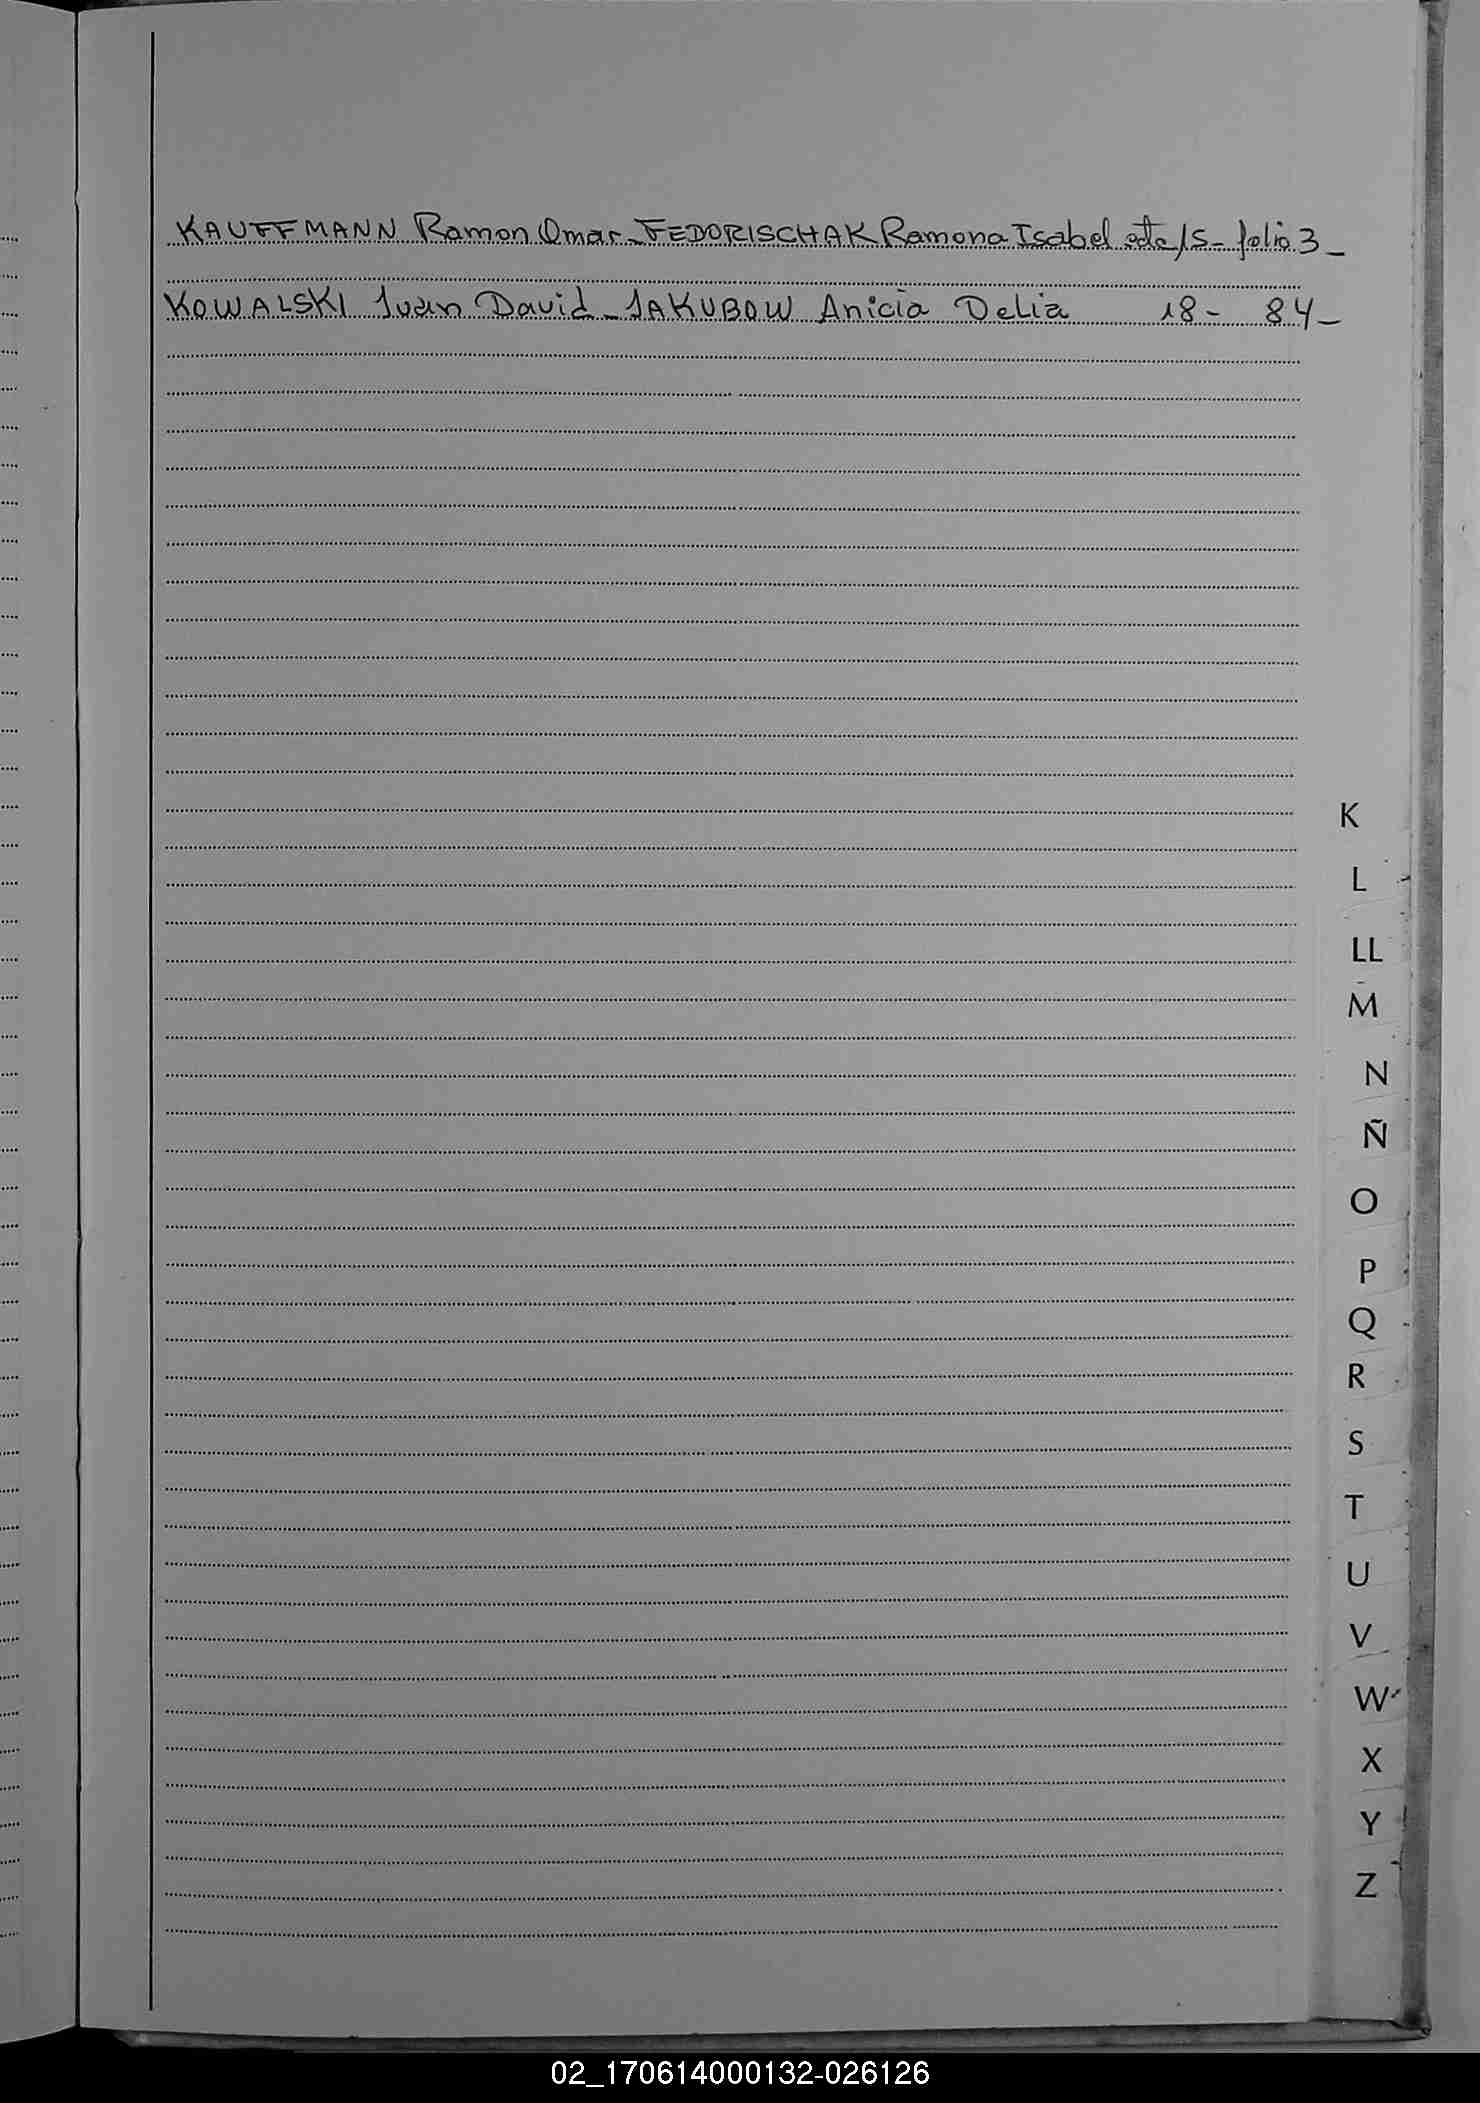 KAUFFMANN Ramon Omar - FEDORISCHAK Ramona Isabel acta 15 - folio 3 -
KOWALSKI Juan David - JAKUBOW Anicia Delia 18 - 84 -
K
L
LL
M
N
Ñ
O
P
Q
R
S
T
U
V
W
X
Y
Z
02_170614000132-026126